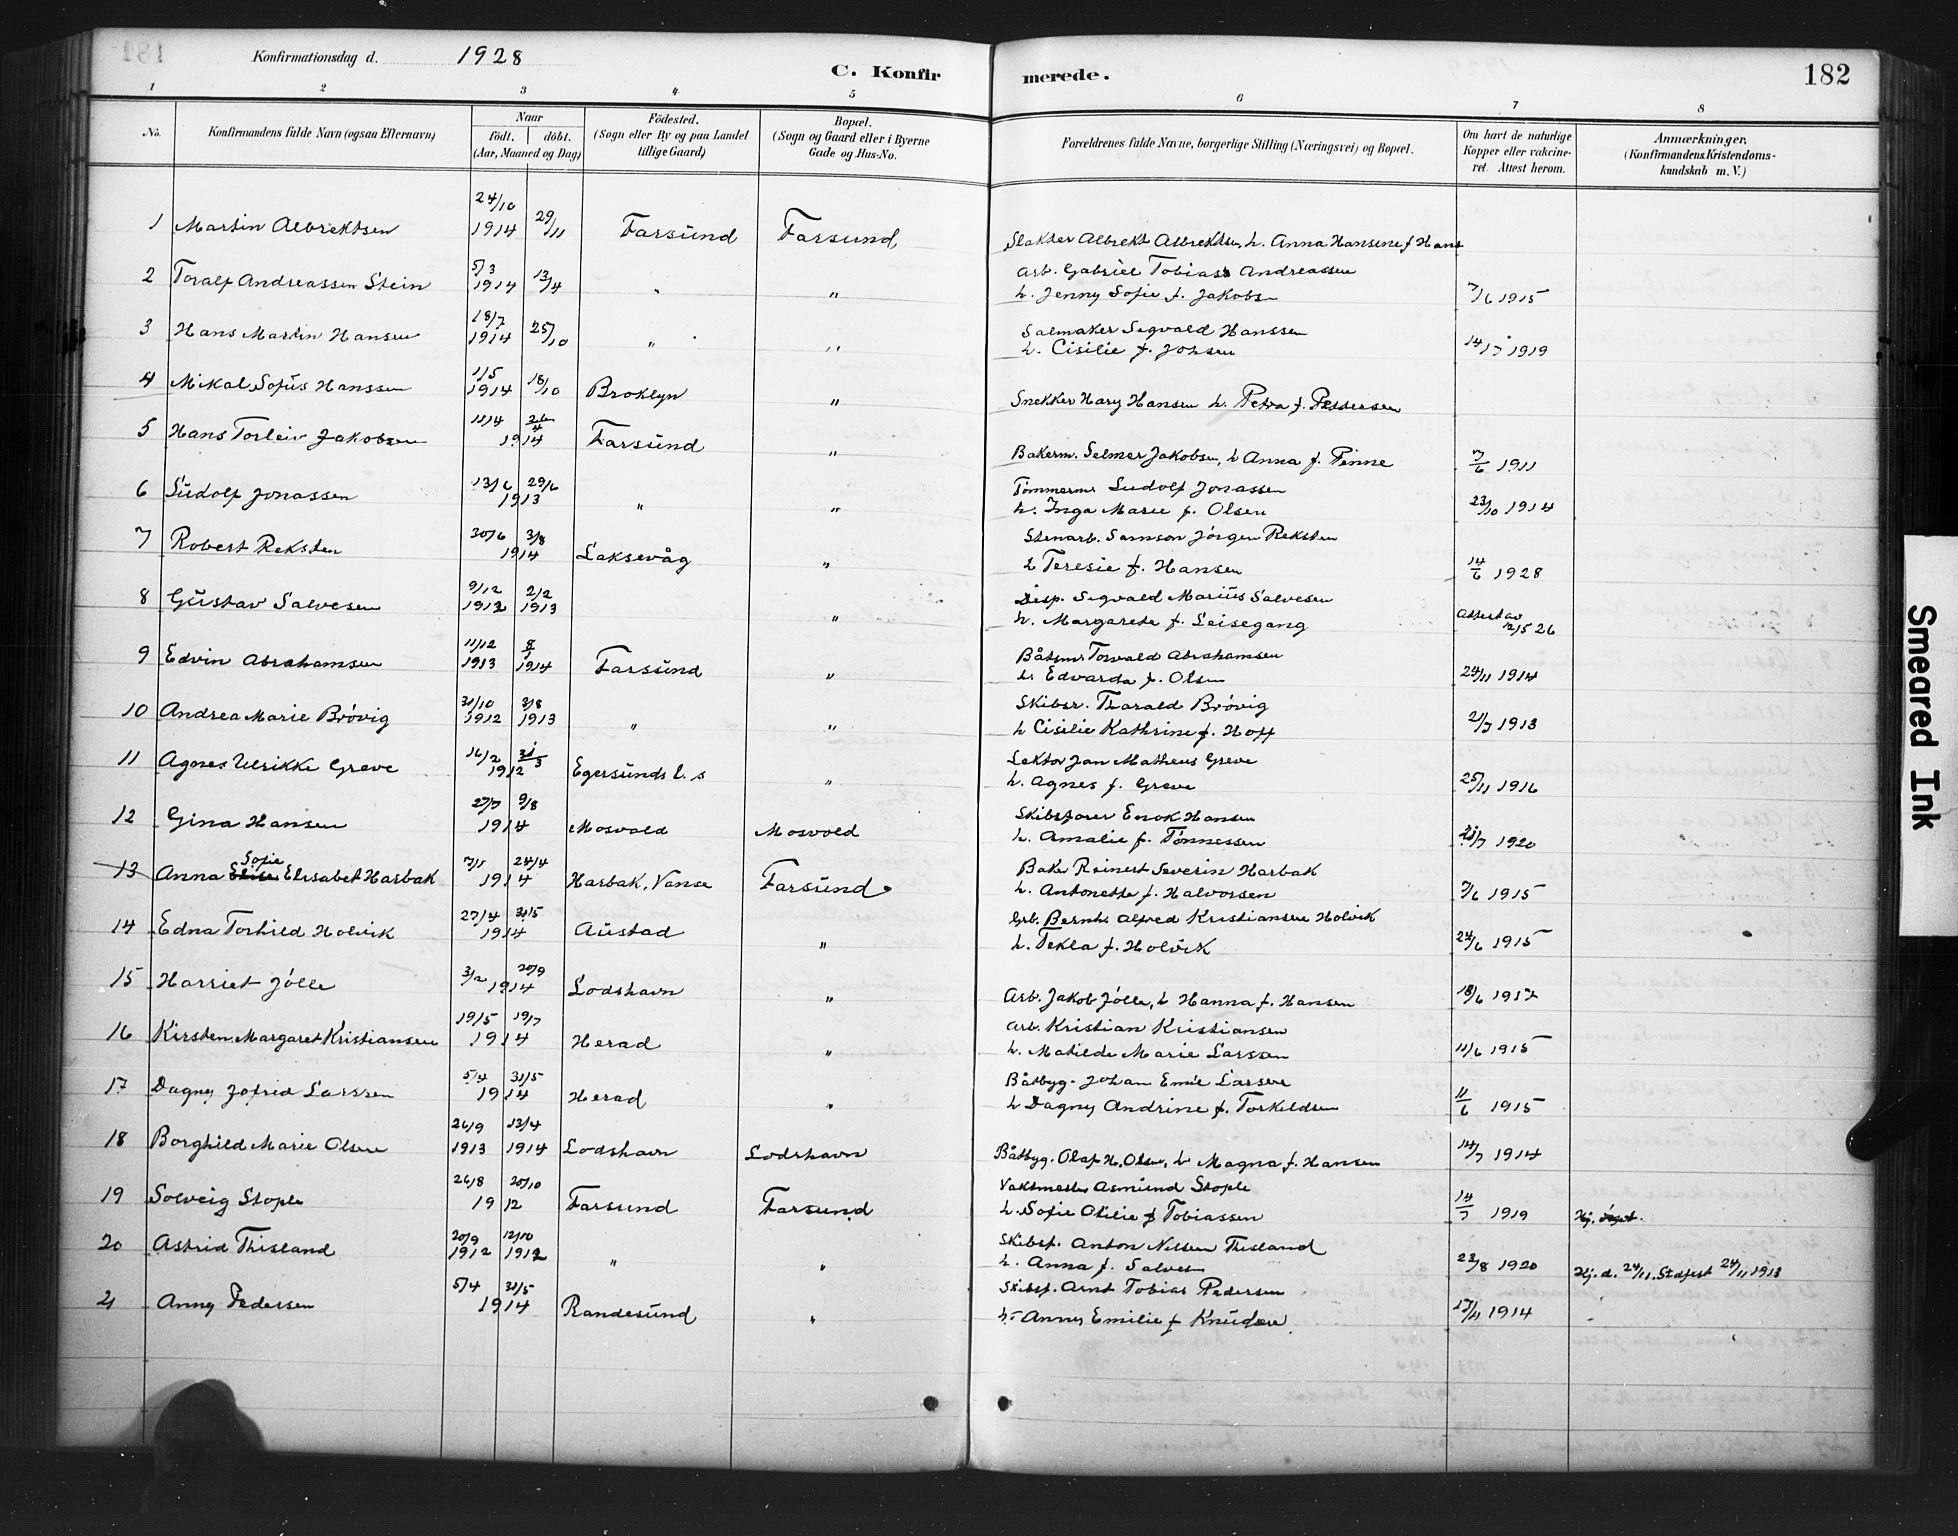 Konfirmationsdag d. 1928
C. Konfirmerede.
182
1 2 3 4 5 6 7 8
No.
Konfirmandens fulde Navn (ogsaa Efternavn)
Naar
födt. döbt.
(Aar, Maaned og Dag)
Födested.
(Sogn eller By og paa Landet tillige Gaard)
Bopæl.
(Sogn og Gaard eller i Byerne Gade og Hus-No.
Forældrenes fulde Navne, borgerlige Stilling (Næringsvei) og Bopæl.
Om havt de naturlige Kopper eller vakcineret. Attest herom.
Anmærkninger.
(Konfirmandens Kristendomskundskab m. V.)
1 Martin Albrektsen 24/10 1914 29/11 Farsund Farsund Slakter Albrekt Albrektsen, h. Anna Hansine f Hans
2 Toralf Andreassen Stein 5/3 1914 13/4 " " Arb. Gabriel Tobias Andreassen
h. Jenny Sofie f. Jakobs 7/6 1915
3 Hans Martin Hansen 18/7 1914 25/10 " " Salmaker Sigvald Hanssen
h. Cisilie f. Johsen 14/7 1919
4 Mikal Sofus Hanssen 1/5 1914 18/10 Broklyn " Snekker Hary Hansen h. Petra f. Pedersen
5 Hans Torleiv Jakobsen 11/4 26/4 1914 Farsund " Bakerm. Selmer Jakobsen, h Anna f. Finne 7/6 1911
6 Ludolf Jonassen 13/6 29/6 1913 " " Tömmerm Ludolf Jonassen
h. Inga Marie f. Olsen 23/10 1914
7 Robert Reksten 30/6 3/8 1914 Laksevåg " Stenarb. Samson Jörgen Reksten
h Teresie f. Hansen 14/6 1928
8 Gustav Salvesen 9/12 1912 2/2 1913 " Disp. Sigvald Marius Salvesen
h. Margarete f. Leisegang Attest av 12/5 26
9 Edvin Abrahamsen 11/12 1913 1914 Farsund " Båtsm Torvald Abrahamsen
h. Edvarda f. Olsen 24/11 1914
10 Andrea Marie Brövig 31/10 1912 3/8 1913 " " Skibsr. Tharald Brövig
h Cisilie Kathrine f. Hoff 21/7 1913
11 Agnes Ulrikke Greve 16/2 31/3 1912 Egersunds l.s " Lektor Jan Matheus Greve
h. Agnes f. Greve 25/11 1916
12 Gina Hansen 27/7 9/8 1914 Mosvold Mosvold Skibsförer Enok Hansen
h. Amalie f. Tönnessen 21/7 1920
13 Anna Sofie Elisabet Harbak 7/1 24/4 1914 Harbak, Vanse Farsund Baker Reinert Severin Harbak
h. Antonette f. Halvorsen 7/6 1915
14 Edna Torhild Holvik 27/4 31/5 1914 Austad " Grb. Bernh. Alfred Kristiansen Holvik
h. Tekla f. Holvik 24/6 1915
15 Harriet Jölle 3/2 20/9 1914 Lodshavn " Arb. Jakob Jölle, h Hanna f. Hansen 18/6 1917
16 Kirsten Margaret Kristiansen 19/5 19/7 1914 Herad " Arb. Kristian Kristiansen
h. Matilde Marie Larssen 11/6 1915
17 Dagny Jofrid Larssen 5/4 31/5 1914 Herad " Båtbyg. Johan Emil Larsen
h Dagny Andrine f. Torkildsen 11/6 1915
18 Borghild Marie Olsen 26/9 1913 13/4 1914 Lodshavn Lodshavn Båtbyg. Olaf H. Olsen, h Magna f. Hansen 14/7 1914
19 Solveig Stople 26/8 20/10 1912 Farsund Farsund Vaktmester Asmund Stople
h. Sofie Otilie f Tobiassen 14/7 1919 Hj.
20 Astrid Thisland 20/9 1912 12/10 1912 " " Skibsf. Anton Nilsen Thisland
h. Anna f. Salves 23/8 1920 Hj. d. 24/11. Stadfest 24/11 1913
21 Anny Pedersen 5/4 31/5 1914 Randesund " Skibsf. Arnt Tobias Pedersen
h. Anny Emilie f Knudsen 17/11 1914
Smeared Ink